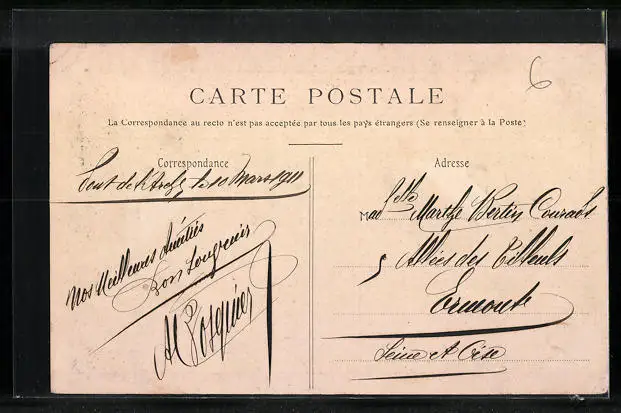 6
CARTE POSTALE
La Correspondance au recto n'est pas acceptée par tous les pays étrangers (Se renseigner à la Poste)
Correspondance
Pont de l'Arche le 10 Mars 1911
Nos Meilleures Amitiés
Bon Souvenir
Adresse
Madelle Marthe Bertin
5 Allées des Tilleuls
Ermont
Seine et Oise